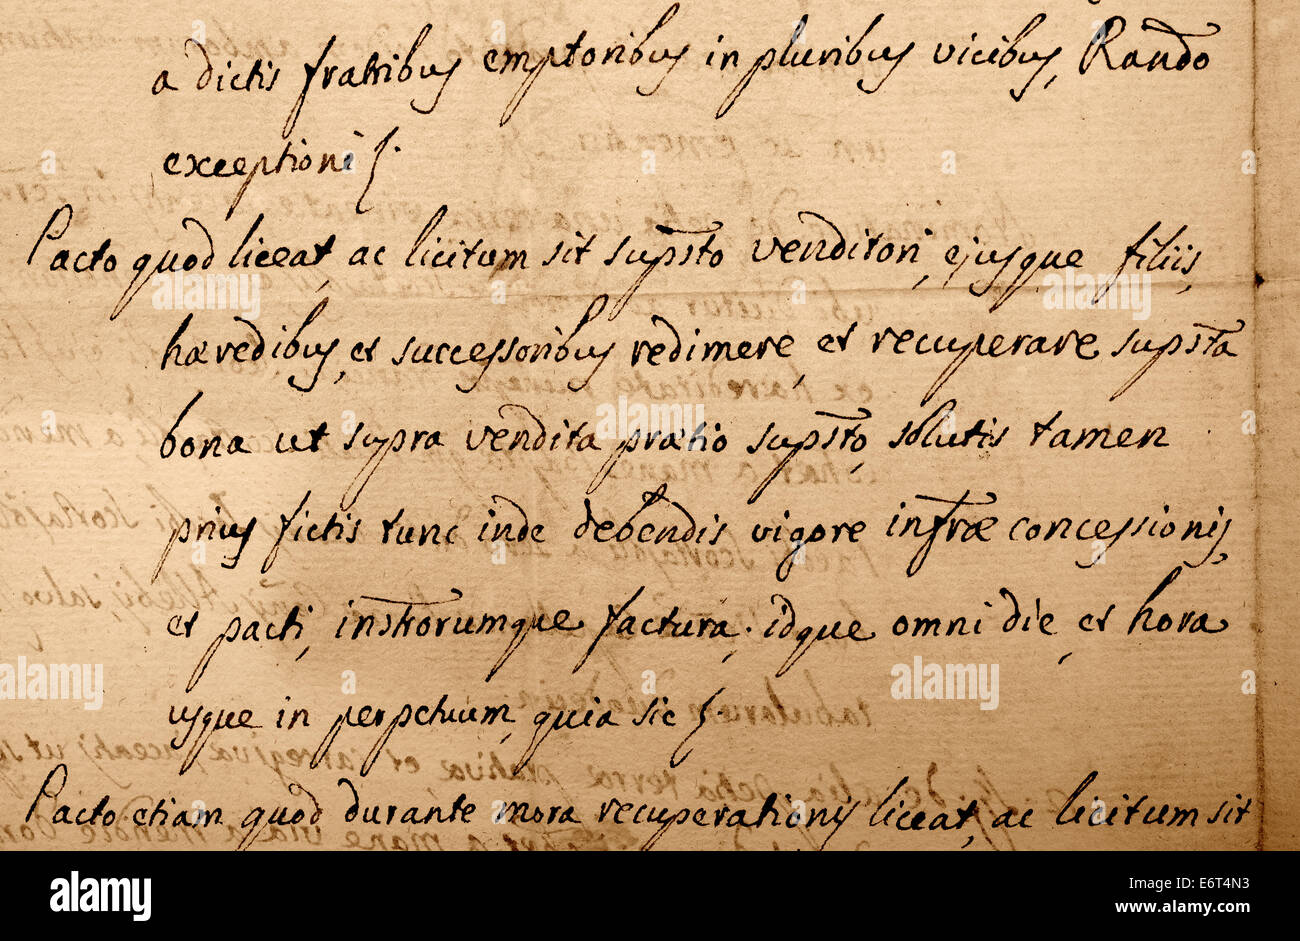 a dictis fratribus emptoribus in pluribus vicibus, Rando
exceptioni
Pacto quod liceat, ac licitum sit supsto venditori, ejusque filiis,
hæredibus, et successoribus redimere, et recuperare supsta
bona ut supra vendita prætio supsto, solutis tamen
prius fictis tunc inde debendis vigore infræ concessionis,
et pacti, instrorumque factura; idque omni die, et hora
usque in perpetuum, quia sic
Pacto etiam quod durante mora recuperationis liceat, ac licitum sit
alamy
alamy stock photo
E6T4N3
www.alamy.com